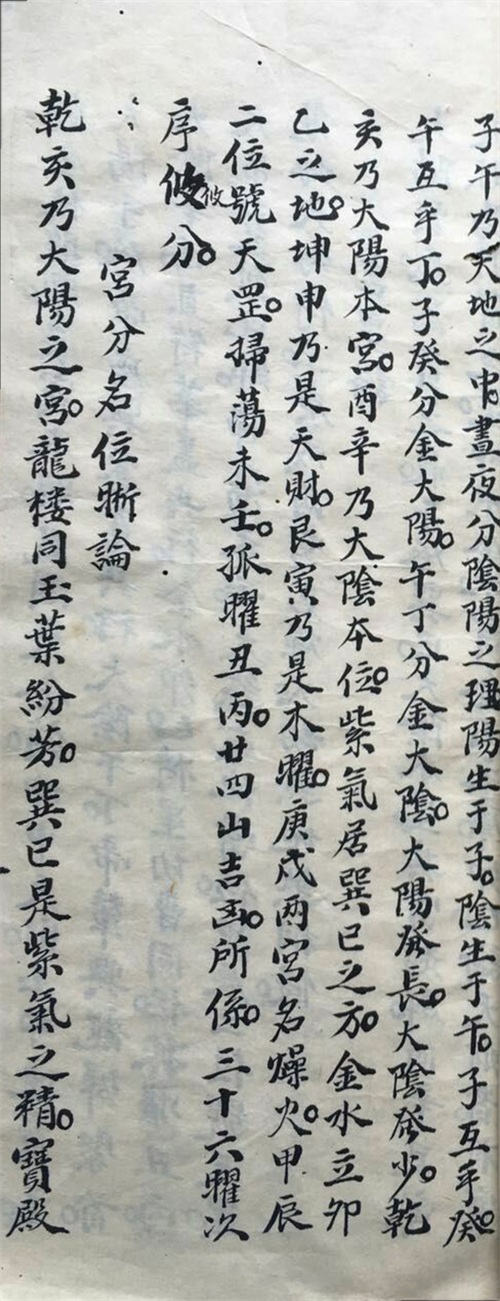 子午乃天地之中。晝夜分陰陽之理陽生于子。陰生于午。子互乎癸。
午互乎丁。子癸分金大陽。午丁分金大陰。大陽發長。大陰發少。乾
亥乃大陽本宮。酉辛乃大陰本位。紫氣居巽巳之方。金水立卯
乙之地。坤申乃是天財。艮寅乃是木曜。庚戌兩宮名燥火。甲辰
二位號天罡。掃蕩未壬。孤曜丑丙。廿四山吉凶。所係。三十六曜次
序攸攸分。
宮分名位晰論
乾亥乃大陽之宮。龍楼同玉葉紛芳。巽巳是紫氣之精。寶殿